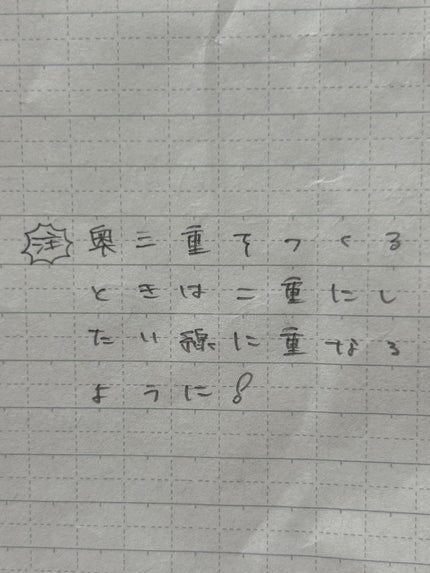 注 奥三重をつくる
ときは二重にし
たい線に重なる
ように